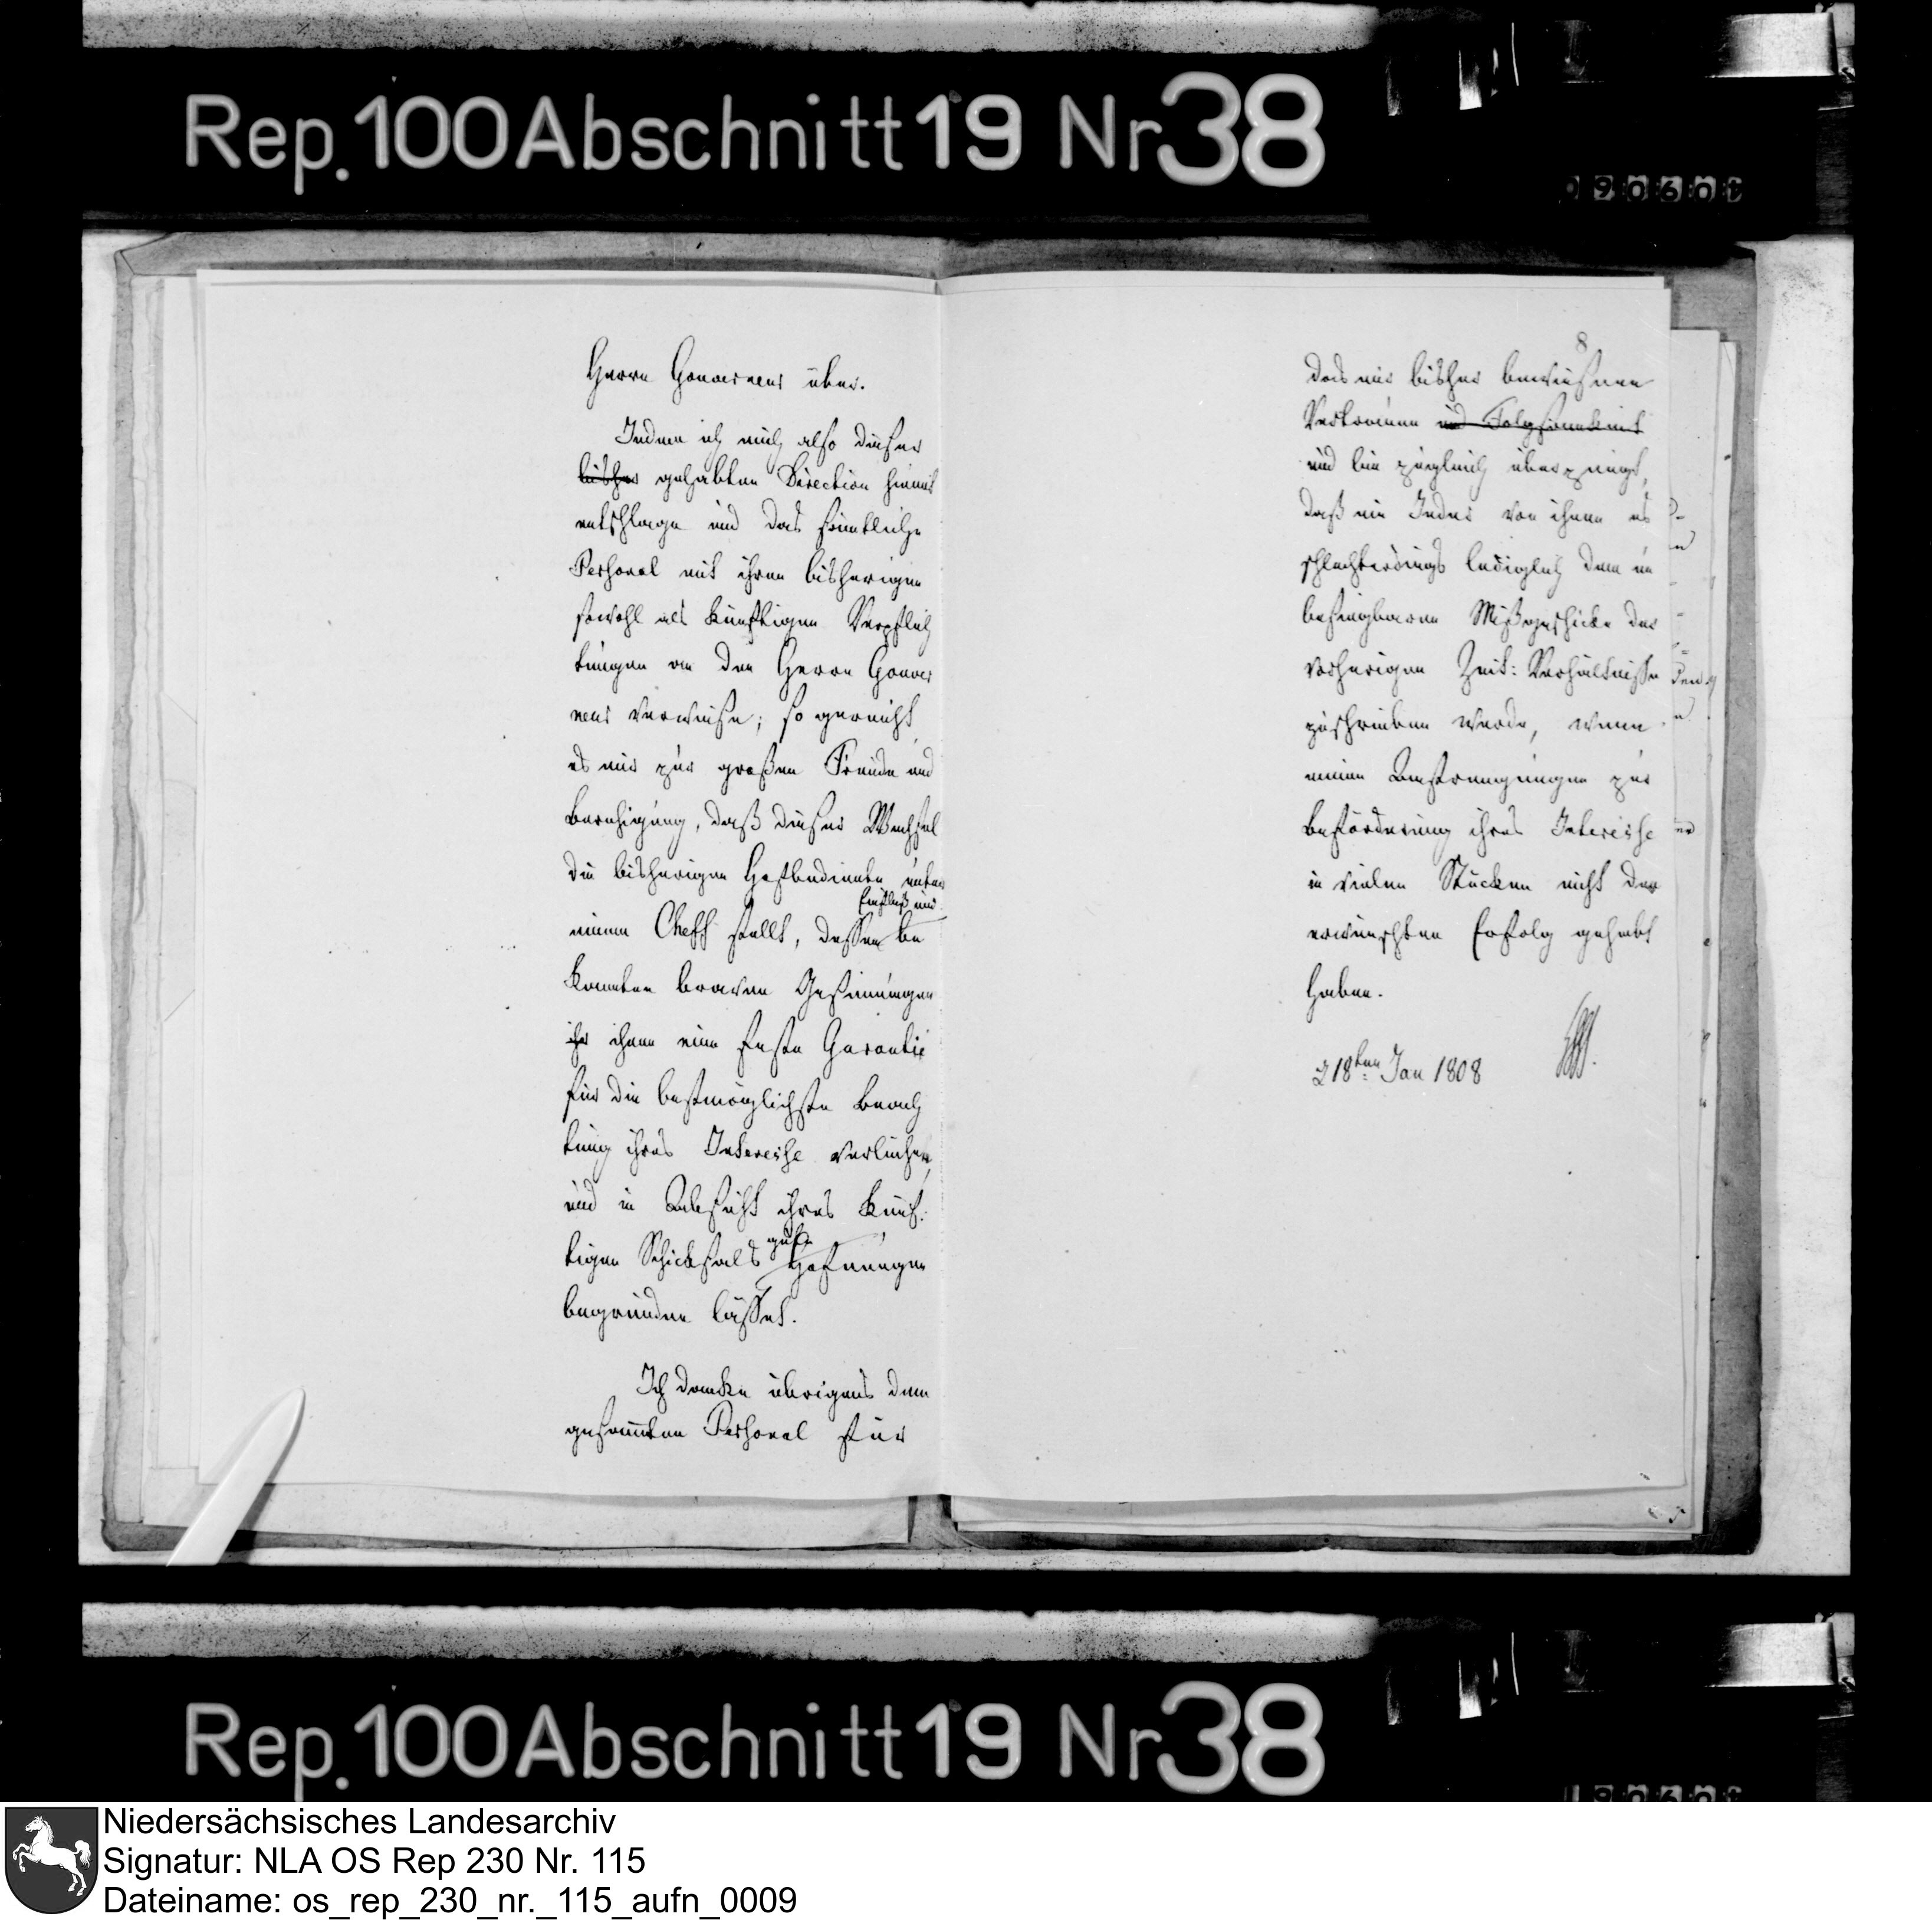 Rep. 100 Abschnitt 19 Nr 38
090601
Herrn Gouverneur über.
Indem ich mich also dieser
bisher gehabten Direction hiemit
entschlage und das sämtliche
Personal mit ihren bisherigen
sowohl als künftigen Verpflich
tungen an den Herrn Gouver
neur verweise; so gereicht
es mir zur großen Freude und
Beruhigung, daß dieser Wechsel
die bisherigen Hofbediente unter
Einfluß und
einem Cheff stellt, dessen be
kannten braven Gesinnungen
ihr ihnen eine feste Garantie
für die bestmöglichste Beach
tung ihres Interesse verleihen,
und in Absicht ihres künf:
tigen Schicksals Hofnungen
gute
begründen lässet.
Ich danke übrigens dem
gesammten Personal für
8
das mir bisher bewiesene
Vertrauen und Folgsamkeit
und bin zugleich überzeugt,
daß ein Jeder von ihnen es
schlechterdings lediglich dem un
besiegbaren Mißgeschicke der
vorherigen Zeit: Verhältnisse
zuschreiben werde, wenn
meine Anstrengungen zur
Beförderung ihres Interesse
in vielen Stücken nicht den
erwünschten Erfolg gehabt
haben.
18ten Jan 1808
Rep. 100 Abschnitt 19 Nr 38
Niedersächsisches Landesarchiv
Signatur: NLA OS Rep 230 Nr. 115
Dateiname: os_rep_230_nr._115_aufn_0009